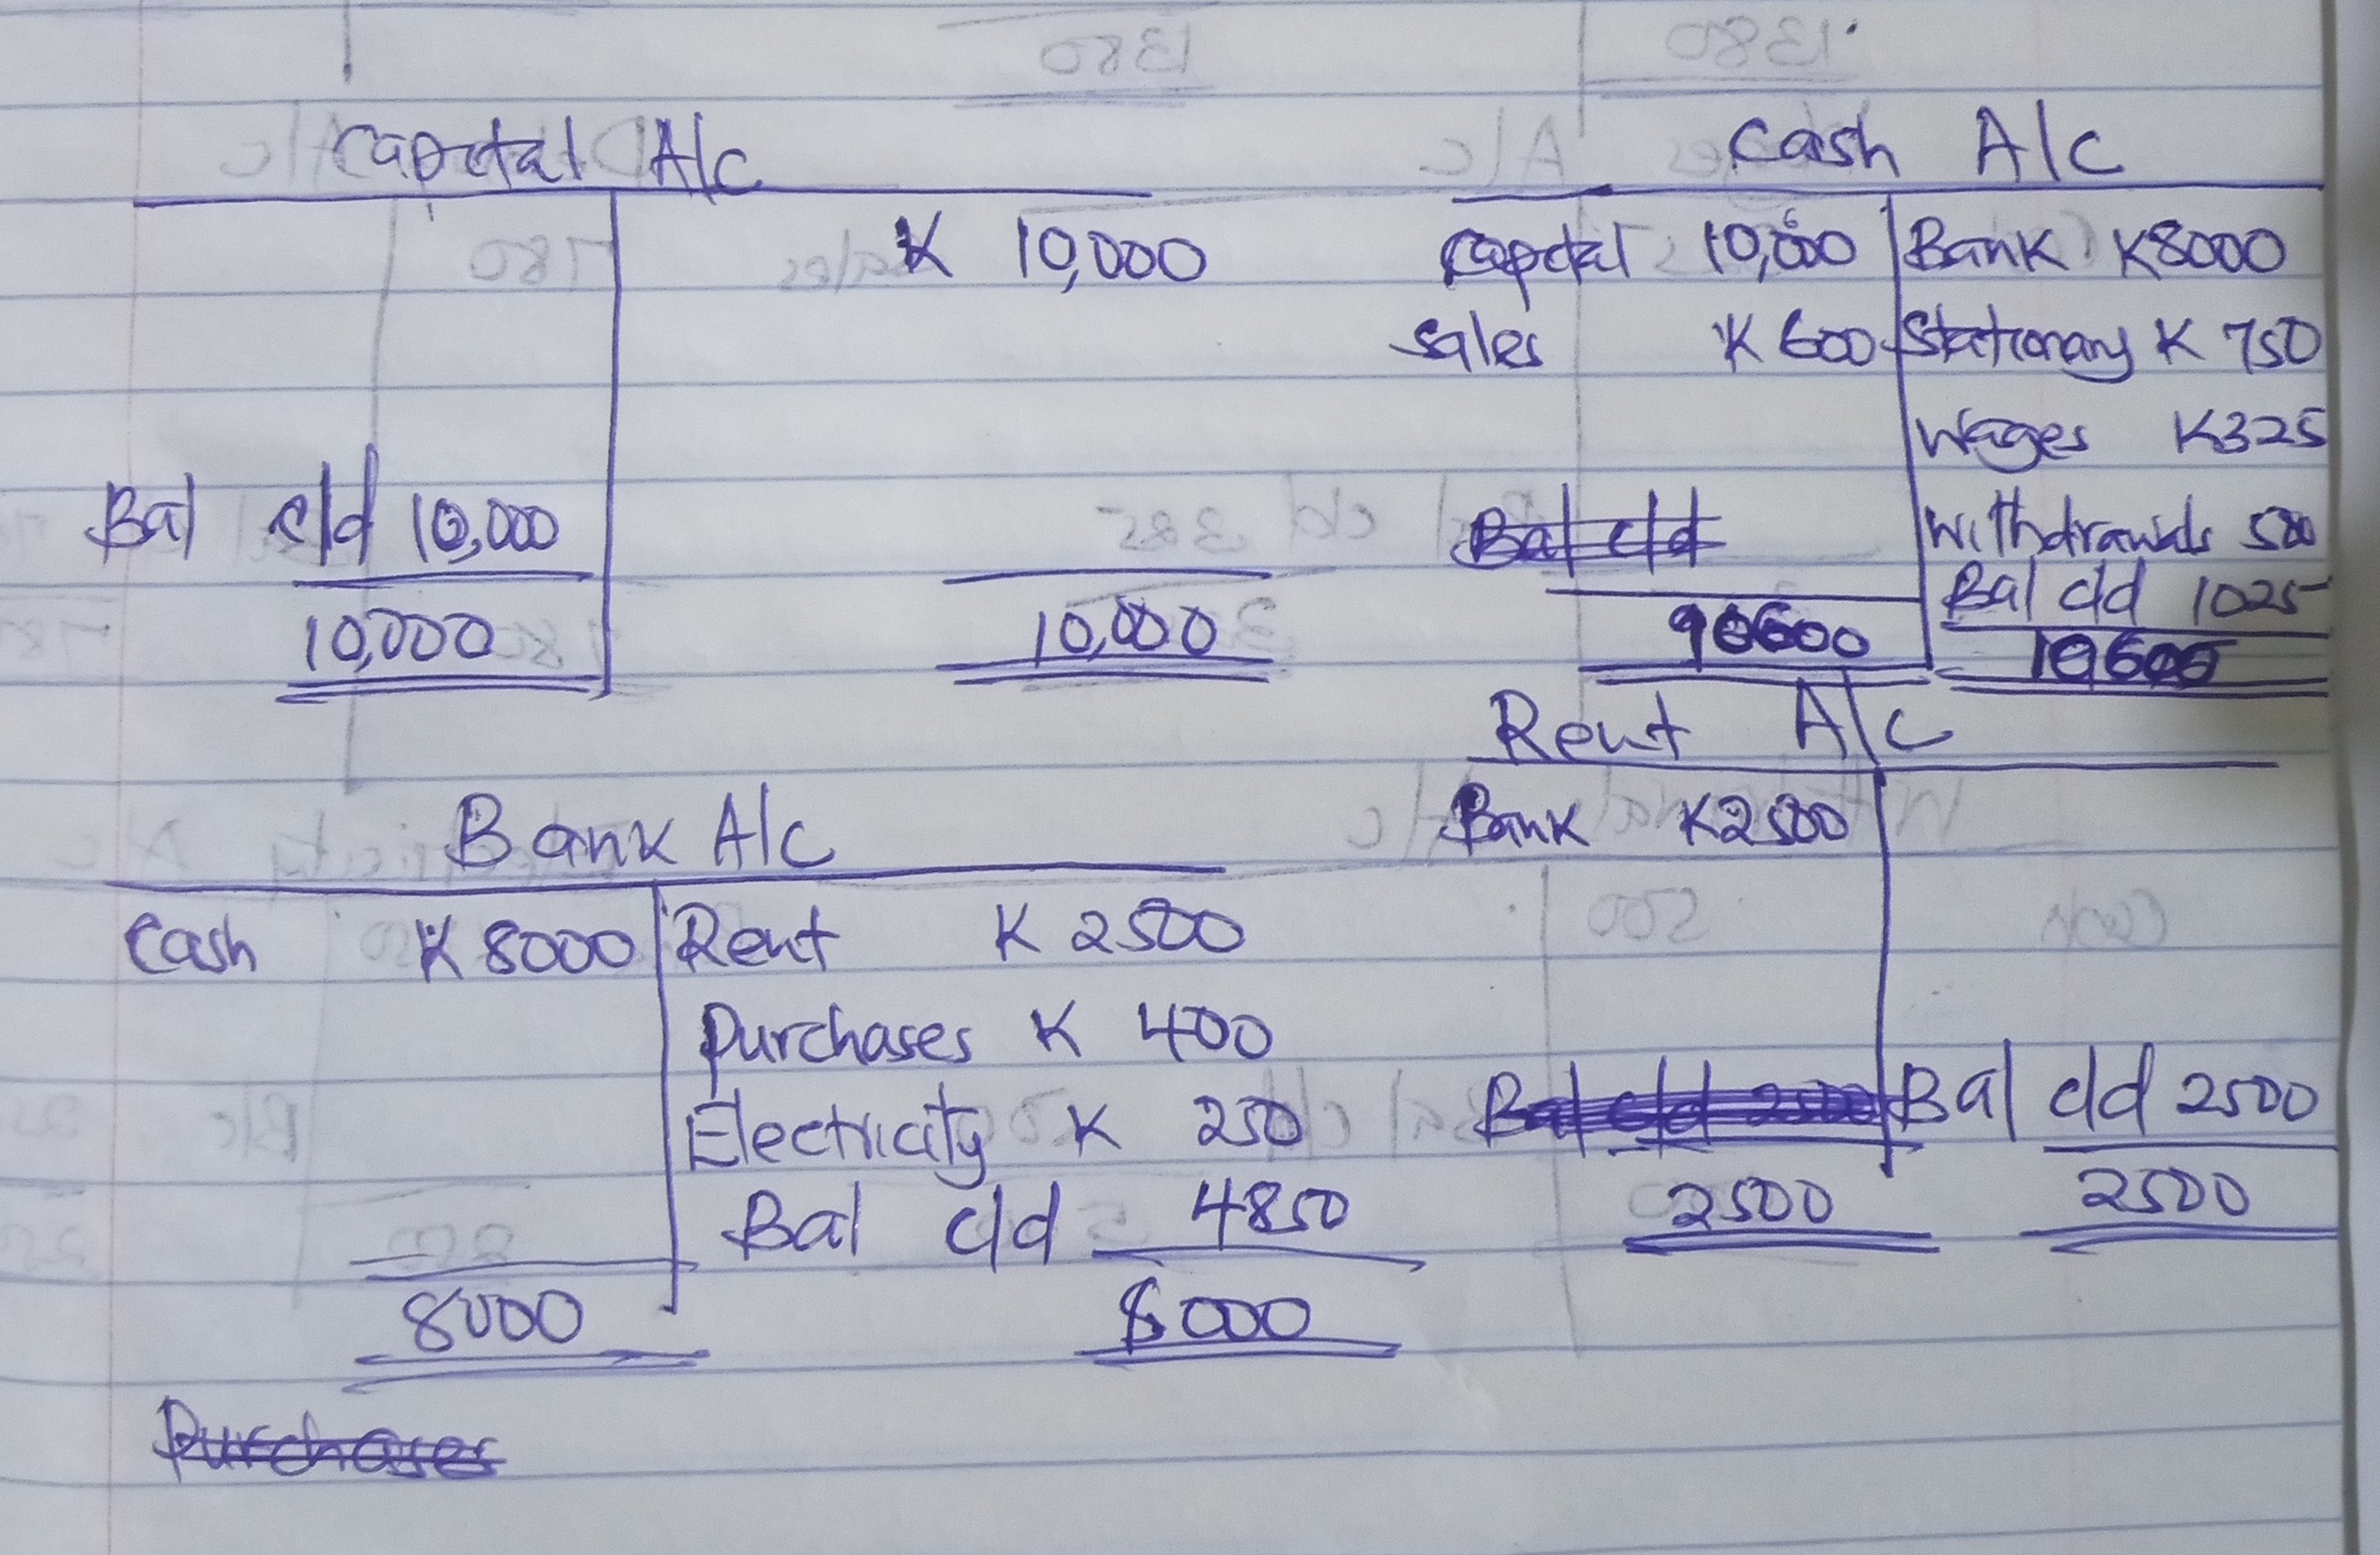 Capital A/C
K 10,000
Bal c/d 10,000
10,000 10,000
Cash A/C
Capital 10,000 Bank K8000
Sales K 600 Stationary K 750
Wages K325
Bal c/d Withdrawals 500
Bal c/d 1025
10600 10600
Bank A/C
Cash K 8000 Rent K 2500
Purchases K 400
Electricity K 250
Bal c/d 4850
8000 8000
Purchases
Rent A/C
Bank K2500
Bal c/d 2500 Bal c/d 2500
2500 2500